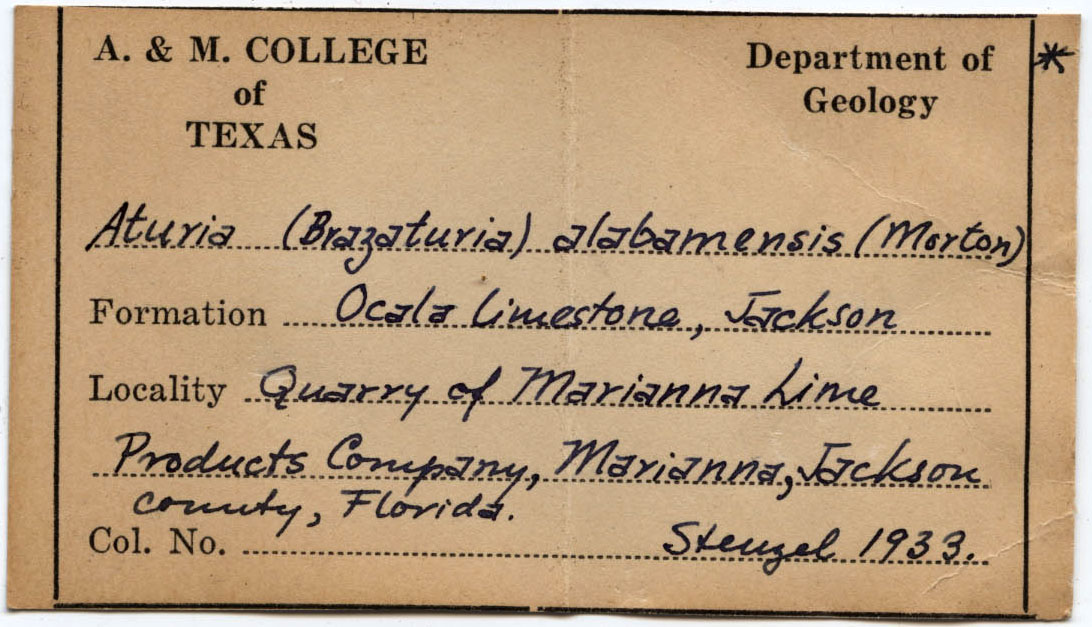 A. & M. COLLEGE
of
TEXAS
Department of
Geology
*
Aturia (Brazaturia) alabamensis (Morton)
Formation Ocala Limestone, Jackson
Locality Quarry of Marianna Lime
Products Company, Marianna, Jackson
county, Florida.
Col. No. Stenzel 1933.